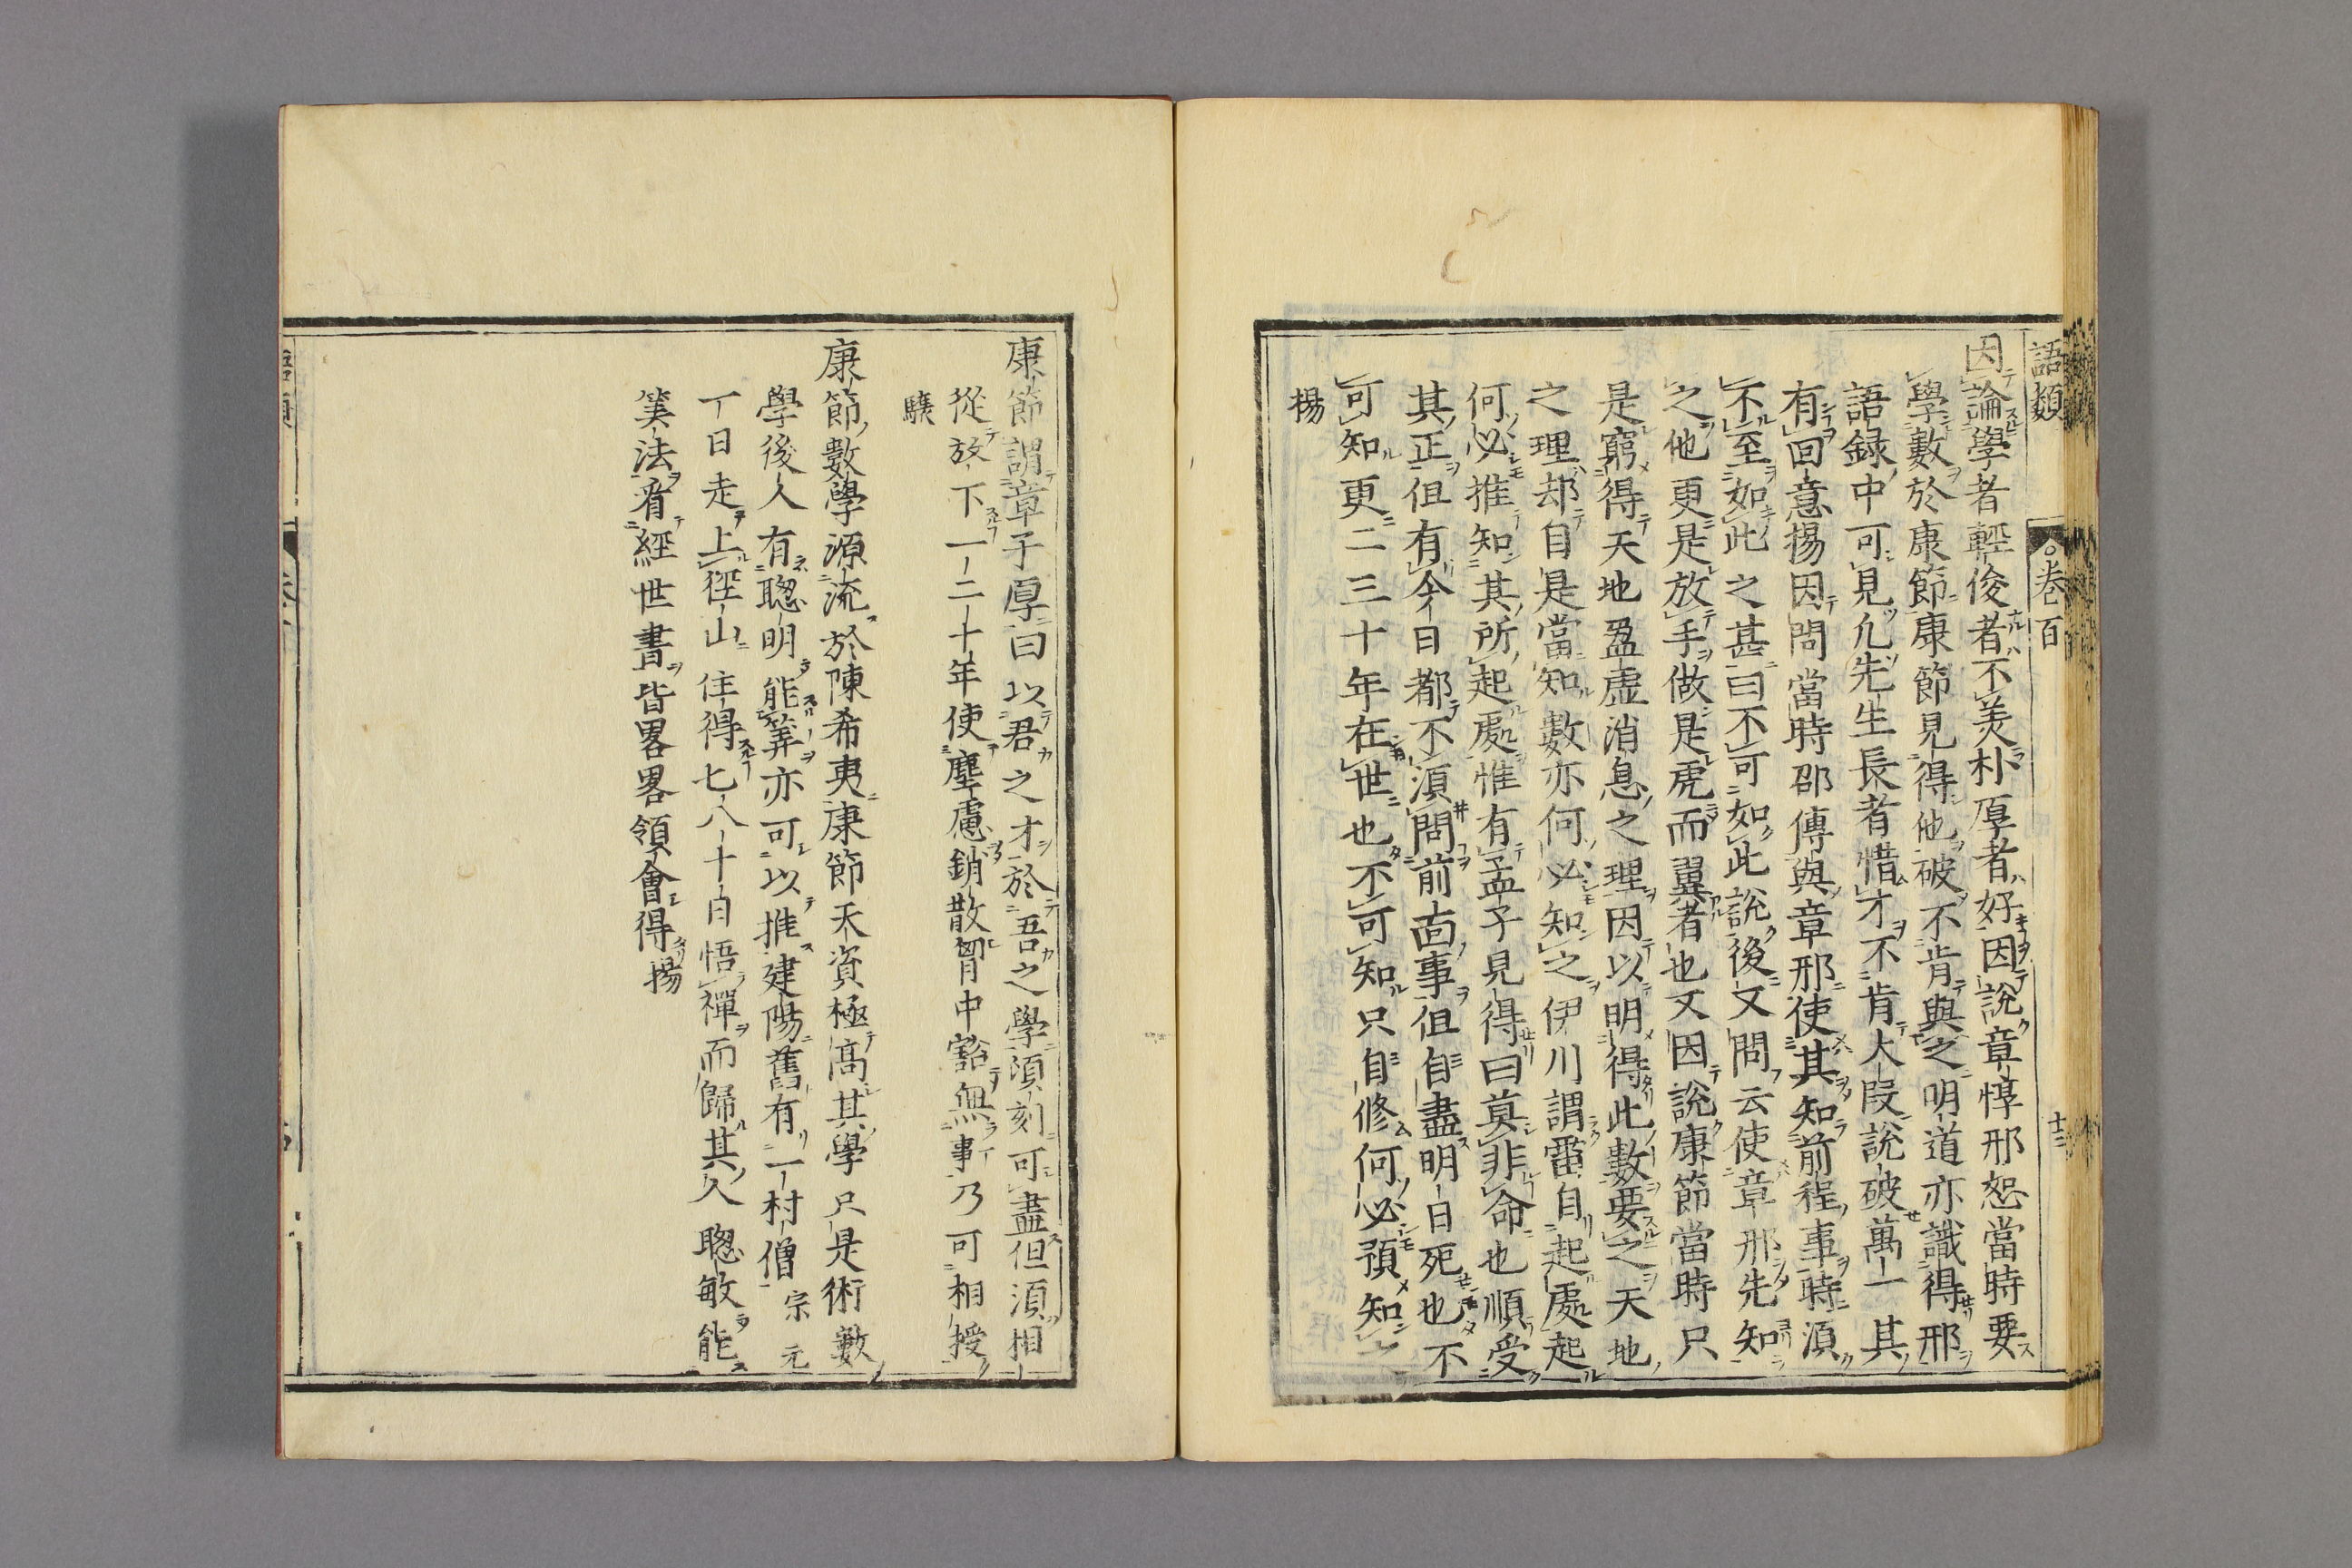 語類
卷百
十三
因論學者輕俊者不美朴厚者好因說章惇邢恕當時要
學數於康節康節見得他破不肯與之明道亦識得邢
語録中可見凢先生長者惜才不肯大段說破萬一其
有回意揚因問當時邵傳與章邢使其知前程事時湏
不至如此之甚曰不可如此說後又問云使章邢先知
之他更是放手做是虎而翼者也又因說康節當時只
是窮得天地盈虚消息之理因以明得此數要之天地
之理却自是當知數亦何必知之伊川謂雷自起處起
何必推知其所起處惟有孟子見得曰莫非命也順受
其正但有今日都不湏問前面事但自盡明日死也不
可知更二三十年在世也不可知只自修何必預知之
揚
康節謂章子厚曰以君之才於吾之學湏刻可盡但湏相
從放下一二十年使塵慮銷散胷中豁無事乃可相授
驤
康節數學源流於陳希夷康節天資極髙其學只是術數
學後人有聦明能筭亦可以推建陽舊有一村僧宗元
一日走上徑山住得七八十日悟禪而歸其人聦敏能
筭法看經世書皆畧畧領會得揚